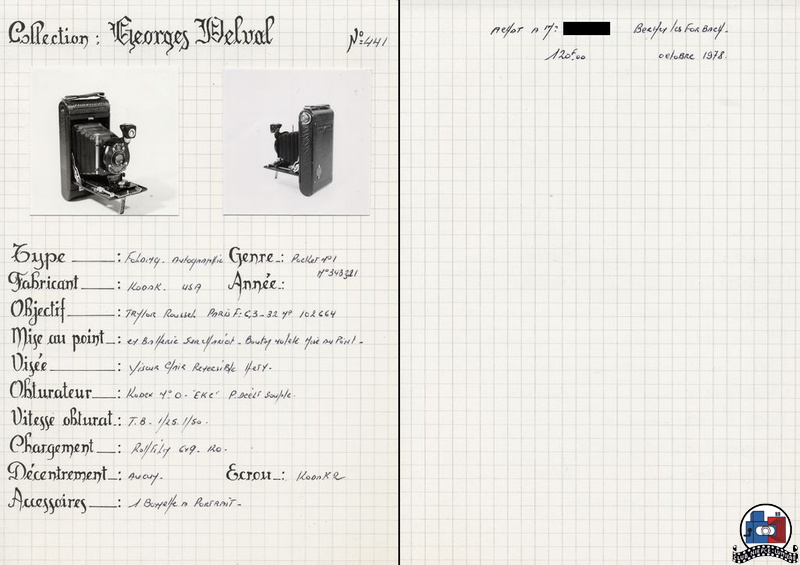 Collection : Georges Delval N° 441
Type : Folding. Autographic Genre : Pocket N°1
N° 343321
Fabricant : Kodak. USA Année :
Objectif : Taylor Roussel Paris F: 6,3 - 32 N° 102664
Mise au point : et Sur Chariot - Mise au Point -
Visée : Viseur Clair Reversible
Obturateur : Kodex N° O - souple.
Vitesse obturat. : T.B - 1/25. 1/50.
Chargement : Rollfilm 6x9 - 120.
Décentrement : Aucun. Ecrou : Kodak
Accessoires : 1 Bonnette à Portrait -
Achat à Mr: Behren les Forbach.
120F,00 octobre 1978.